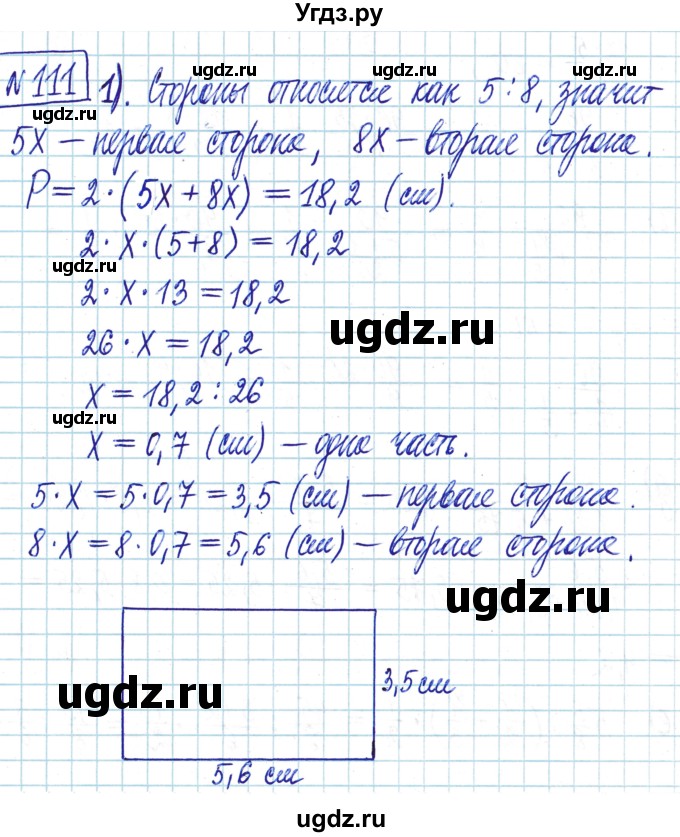 Угдз.ру
№ 111 1). Стороны относятся как 5:8, значит
5x – первая сторона, 8x – вторая сторона.
P = 2·(5x + 8x) = 18,2 (см).
2·x·(5+8) = 18,2
2·x·13 = 18,2
26·x = 18,2
x = 18,2 : 26
x = 0,7 (см) – одна часть.
5·x = 5·0,7 = 3,5 (см) – первая сторона.
8·x = 8·0,7 = 5,6 (см) – вторая сторона.
3,5 см
5,6 см
ugdz.ru
ugdz.ru
ugdz.ru
ugdz.ru
ugdz.ru
ugdz.ru
ugdz.ru
ugdz.ru
ugdz.ru
ugdz.ru
ugdz.ru